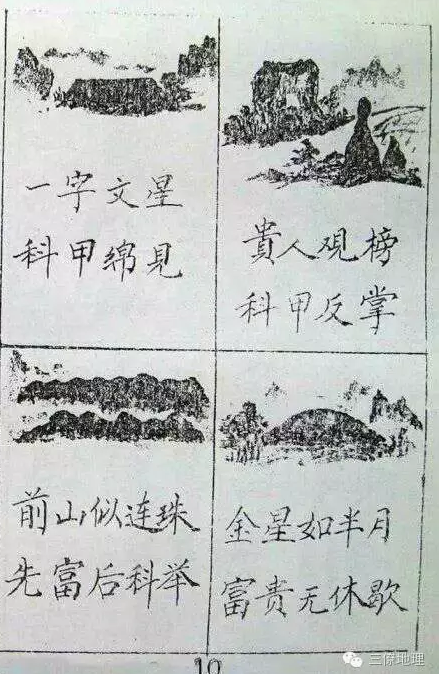 一字文星
科甲绵見
貴人观榜
科甲反掌
前山似连珠
先富后科举
金星如半月
富贵无休歇
10
三僚地理